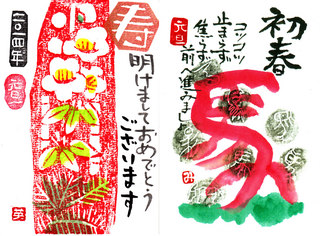 初春
コツコツ
止まらず
焦らず
前へ進もう
元旦
馬
寿
明けまして おめでとう
ございます
二〇一四年
元旦